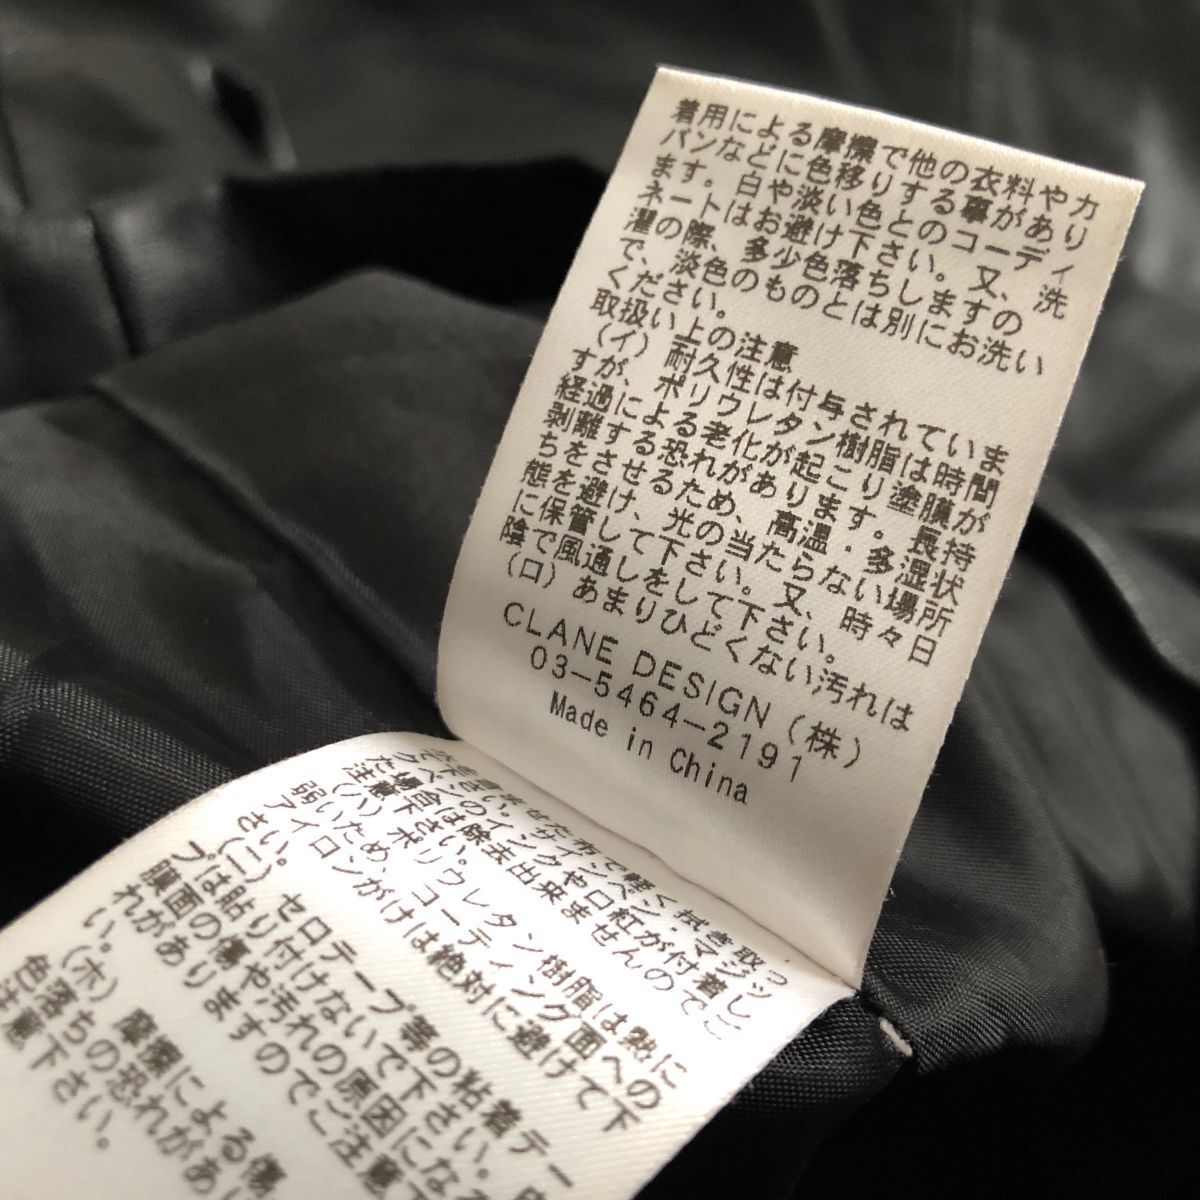 着用による摩擦で他の衣料やカ
バンなどに色移りする事があり
ます。白や淡い色とのコーディ
ネートはお避け下さい。又、洗
濯の際、多少色落ちしますの
で、淡色のものとは別にお洗い
ください。
取扱い上の注意
(イ)耐久性は付与されていま
すが、ポリウレタン樹脂は時間
経過による老化が起こり塗膜が
剥離する恐れがあります。長持
ちをさせるため、高温・多湿状
態を避け、光の当たらない場所
に保管して下さい。又、時々日
陰で風通しをして下さい。
(ロ)あまりひどくない汚れは
CLANE DESIGN(株)
03-5464-2191
Made in China
せた布で軽く拭き取っ
い。サインペン・マジッ
クペンのインクや口紅が付着し
た場合は除去出来ませんのでご
注意下さい。
(ハ)ポリウレタン樹脂は熱に
弱いため、コーティング面への
アイロンがけは絶対に避けて下
さい。
(ニ)セロテープ等の粘着テー
プは貼り付けないで下さい。
膜面の傷や汚れの原因になる
れがありますのでご注意下
い。
(ホ)摩擦による傷
色落ちの恐れがあ
注意下さい。